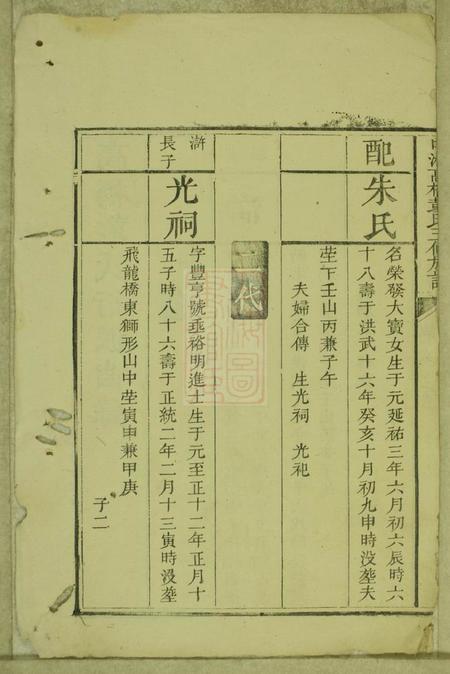 配
朱氏
名榮發大寶女生于元延祐三年六月初六辰時六
十八壽于洪武十六年癸亥十月初九申時没塟夫
塋下壬山丙兼子午
夫婦合傳 生光祠 光祀
二代
澣
長子
光祠
字豐亨號垂裕明進士生于元至正十二年正月十
五子時八十六壽于正統二年二月十三寅時没塟
飛龍橋東獅形山中塋寅申兼甲庚
子二